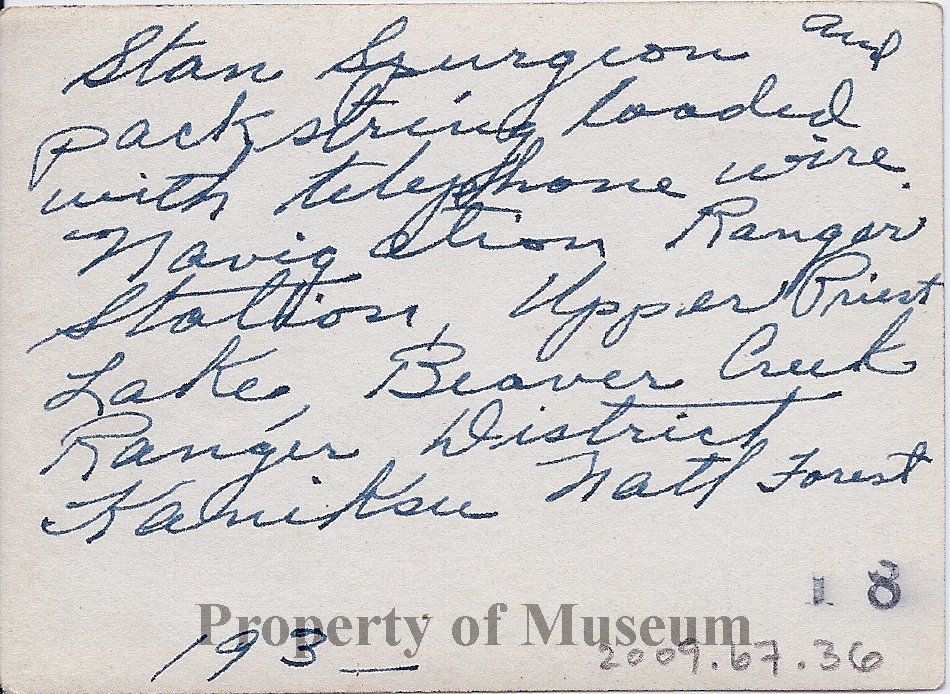 Stan Spurgeon and
packstring loaded
with telephone wire.
Navigation Ranger
Station, Upper Priest
Lake, Beaver Creek
Ranger District
Kaniksu Natl Forest
18
Property of Museum
193_
2009.67.36